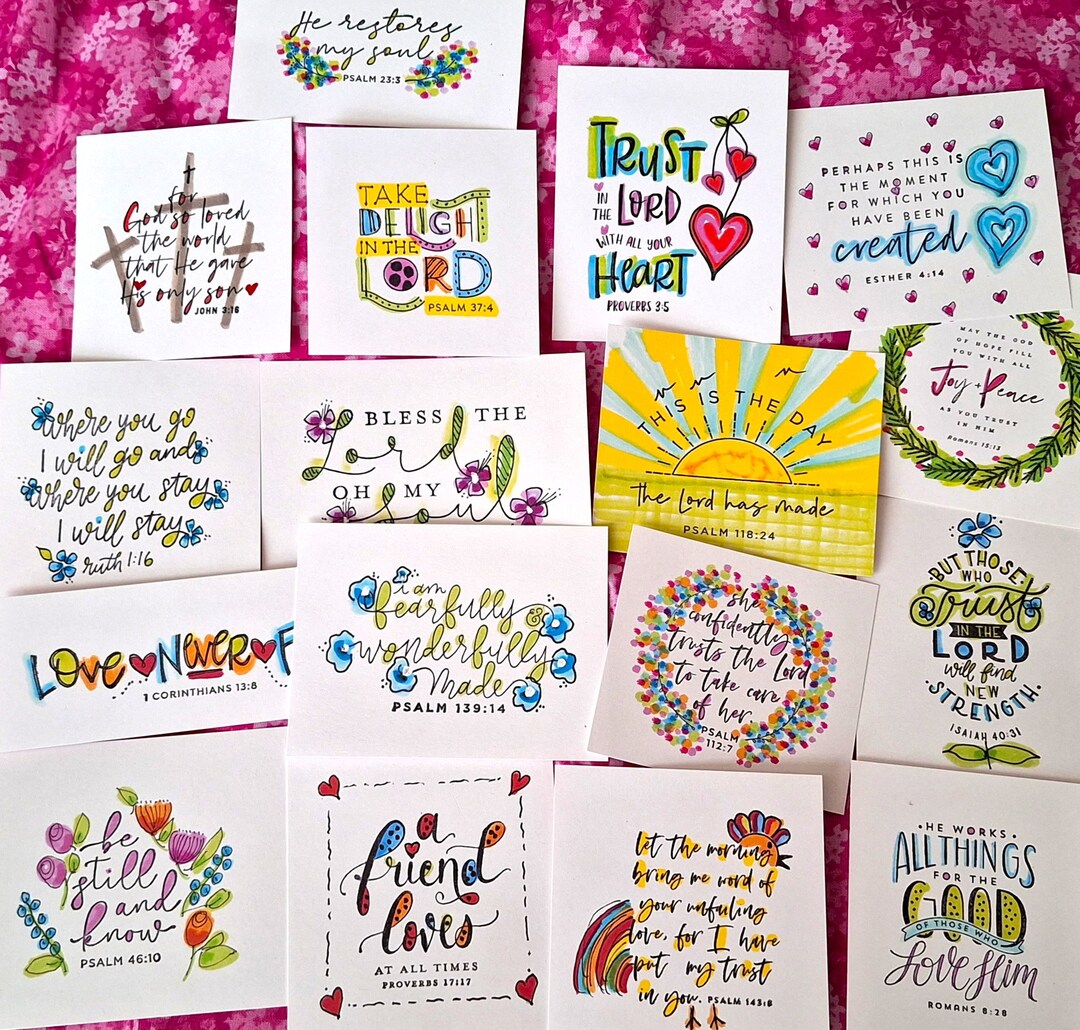 He restores
my soul
PSALM 23:3
for
God so loved
the world
that He gave
His only son
JOHN 3:16
TAKE
DELIGHT
IN THE
LORD
PSALM 37:4
TRUST
IN THE LORD
WITH ALL YOUR
HEART
PROVERBS 3:5
PERHAPS THIS IS
THE MOMENT
FOR WHICH YOU
HAVE BEEN
created
ESTHER 4:14
where you go
I will go and
where you stay
I will stay
ruth 1:16
BLESS THE
Lord
OH MY
Soul
THIS IS THE DAY
the Lord has made
PSALM 118:24
MAY THE GOD
OF HOPE FILL
YOU WITH ALL
Joy + Peace
AS YOU TRUST
IN HIM
Romans 15:13
LOVE NEVER F
1 CORINTHIANS 13:8
i am
fearfully &
wonderfully
made
PSALM 139:14
she
confidently
trusts the Lord
to take care
of her.
PSALM
112:7
BUT THOSE
WHO
Trust
IN THE
LORD
will find
NEW
STRENGTH.
ISAIAH 40:31
be
still
and
know
PSALM 46:10
a
friend
loves
AT ALL TIMES
PROVERBS 17:17
let the morning
bring me word of
your unfailing
love, for I have
put my trust
in you. PSALM 143:8
HE WORKS
ALL THINGS
FOR THE
GOOD
OF THOSE WHO
Love Him
ROMANS 8:28